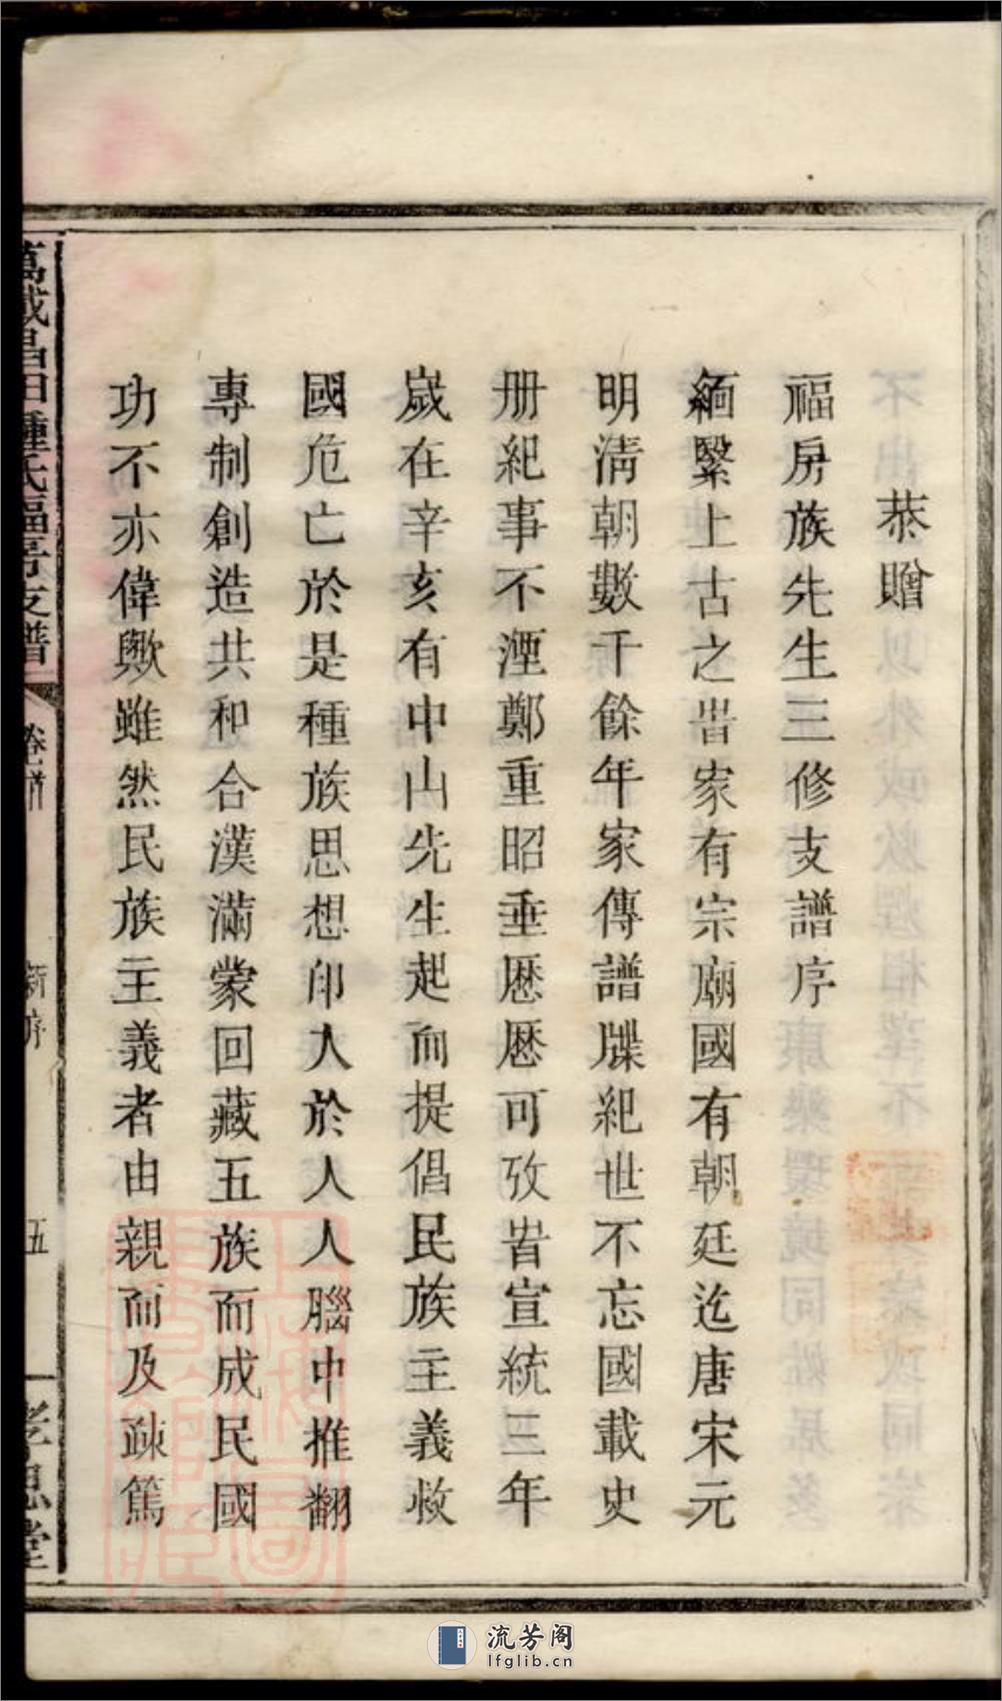 恭贈
福房族先生三修支譜序
緬繄上古之旹家有宗廟國有朝廷迄唐宋元
明清朝數千餘年家傳譜牒紀世不忘國載史
册紀事不湮鄭重昭垂歷歷可攷旹宣統三年
歲在辛亥有中山先生起而提倡民族主義救
國危亡於是種族思想印入於人人腦中推翻
專制創造共和合漢滿蒙回藏五族而成民國
功不亦偉歟雖然民族主義者由親而及疎篤
萬載昌田鍾氏福房支譜
卷首
新序
五
孝思堂
流芳阁
lfglib.cn